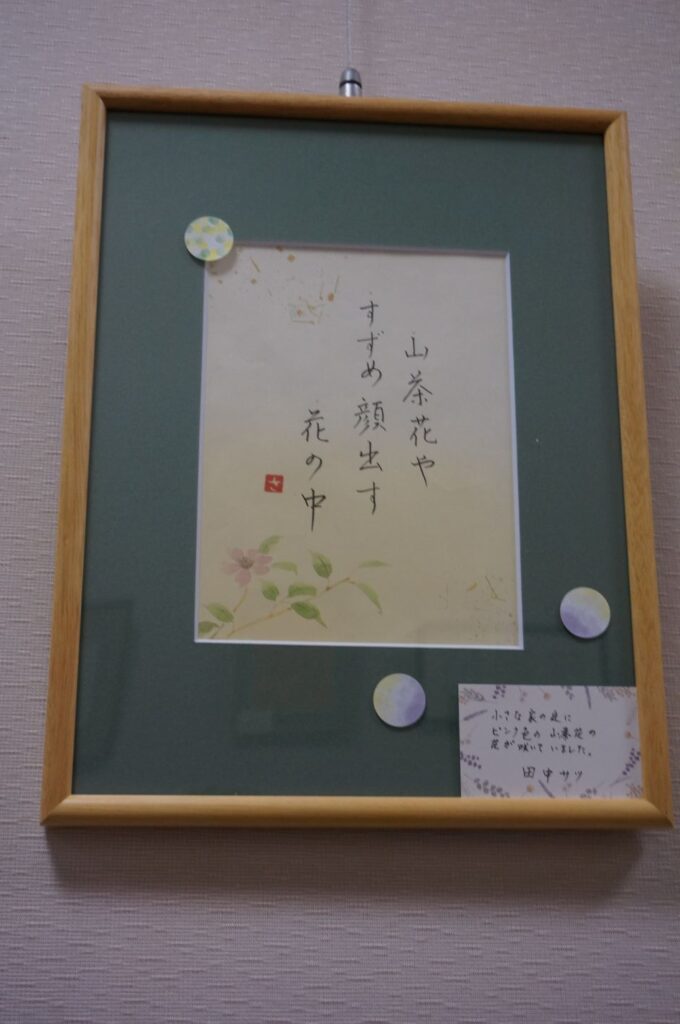 山茶花や
すずめ顔出す
花の中
さ
小さな家の庭に
ピンク色の山茶花の
花が咲いていました。
田中サツ